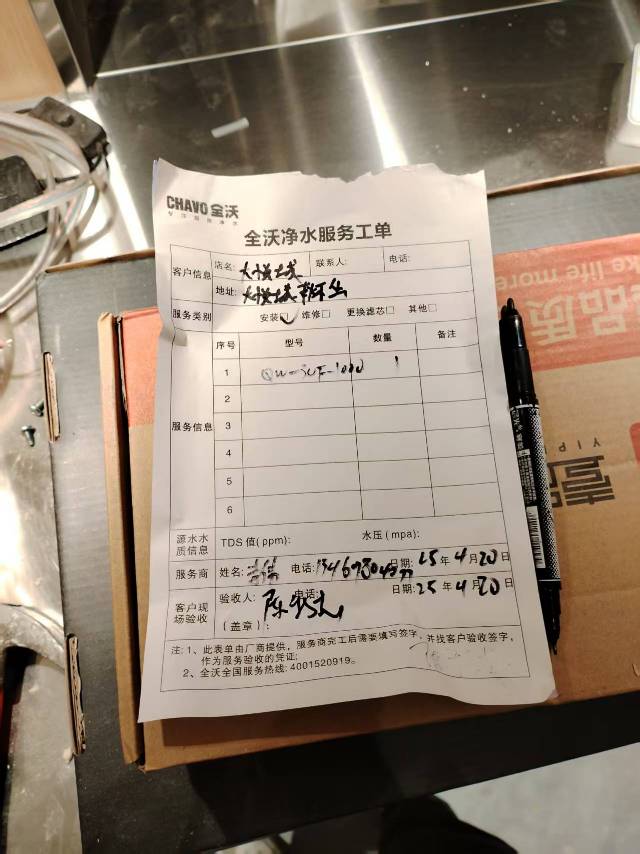 CHAVO 全沃
全沃净水服务工单
客户信息 店名: 大悦城 联系人: 电话:
地址: 大悦城
服务类别 安装☑ 维修□ 更换滤芯□ 其他□
服务信息 序号 型号 数量 备注
1 1
2
3
4
5
6
源水水质信息 TDS 值(ppm): 水压(mpa):
服务商 姓名: 电话: 日期: 25 年 4 月 20 日
客户现场验收 验收人: 电话: 日期: 25 年 4 月 20 日
(盖章):
注: 1、此表单由厂商提供，服务商完工后需要填写签字，并找客户验收签字，
作为服务验收的凭证;
2、全沃全国服务热线: 4001520919。
品质
ke life more
YIP